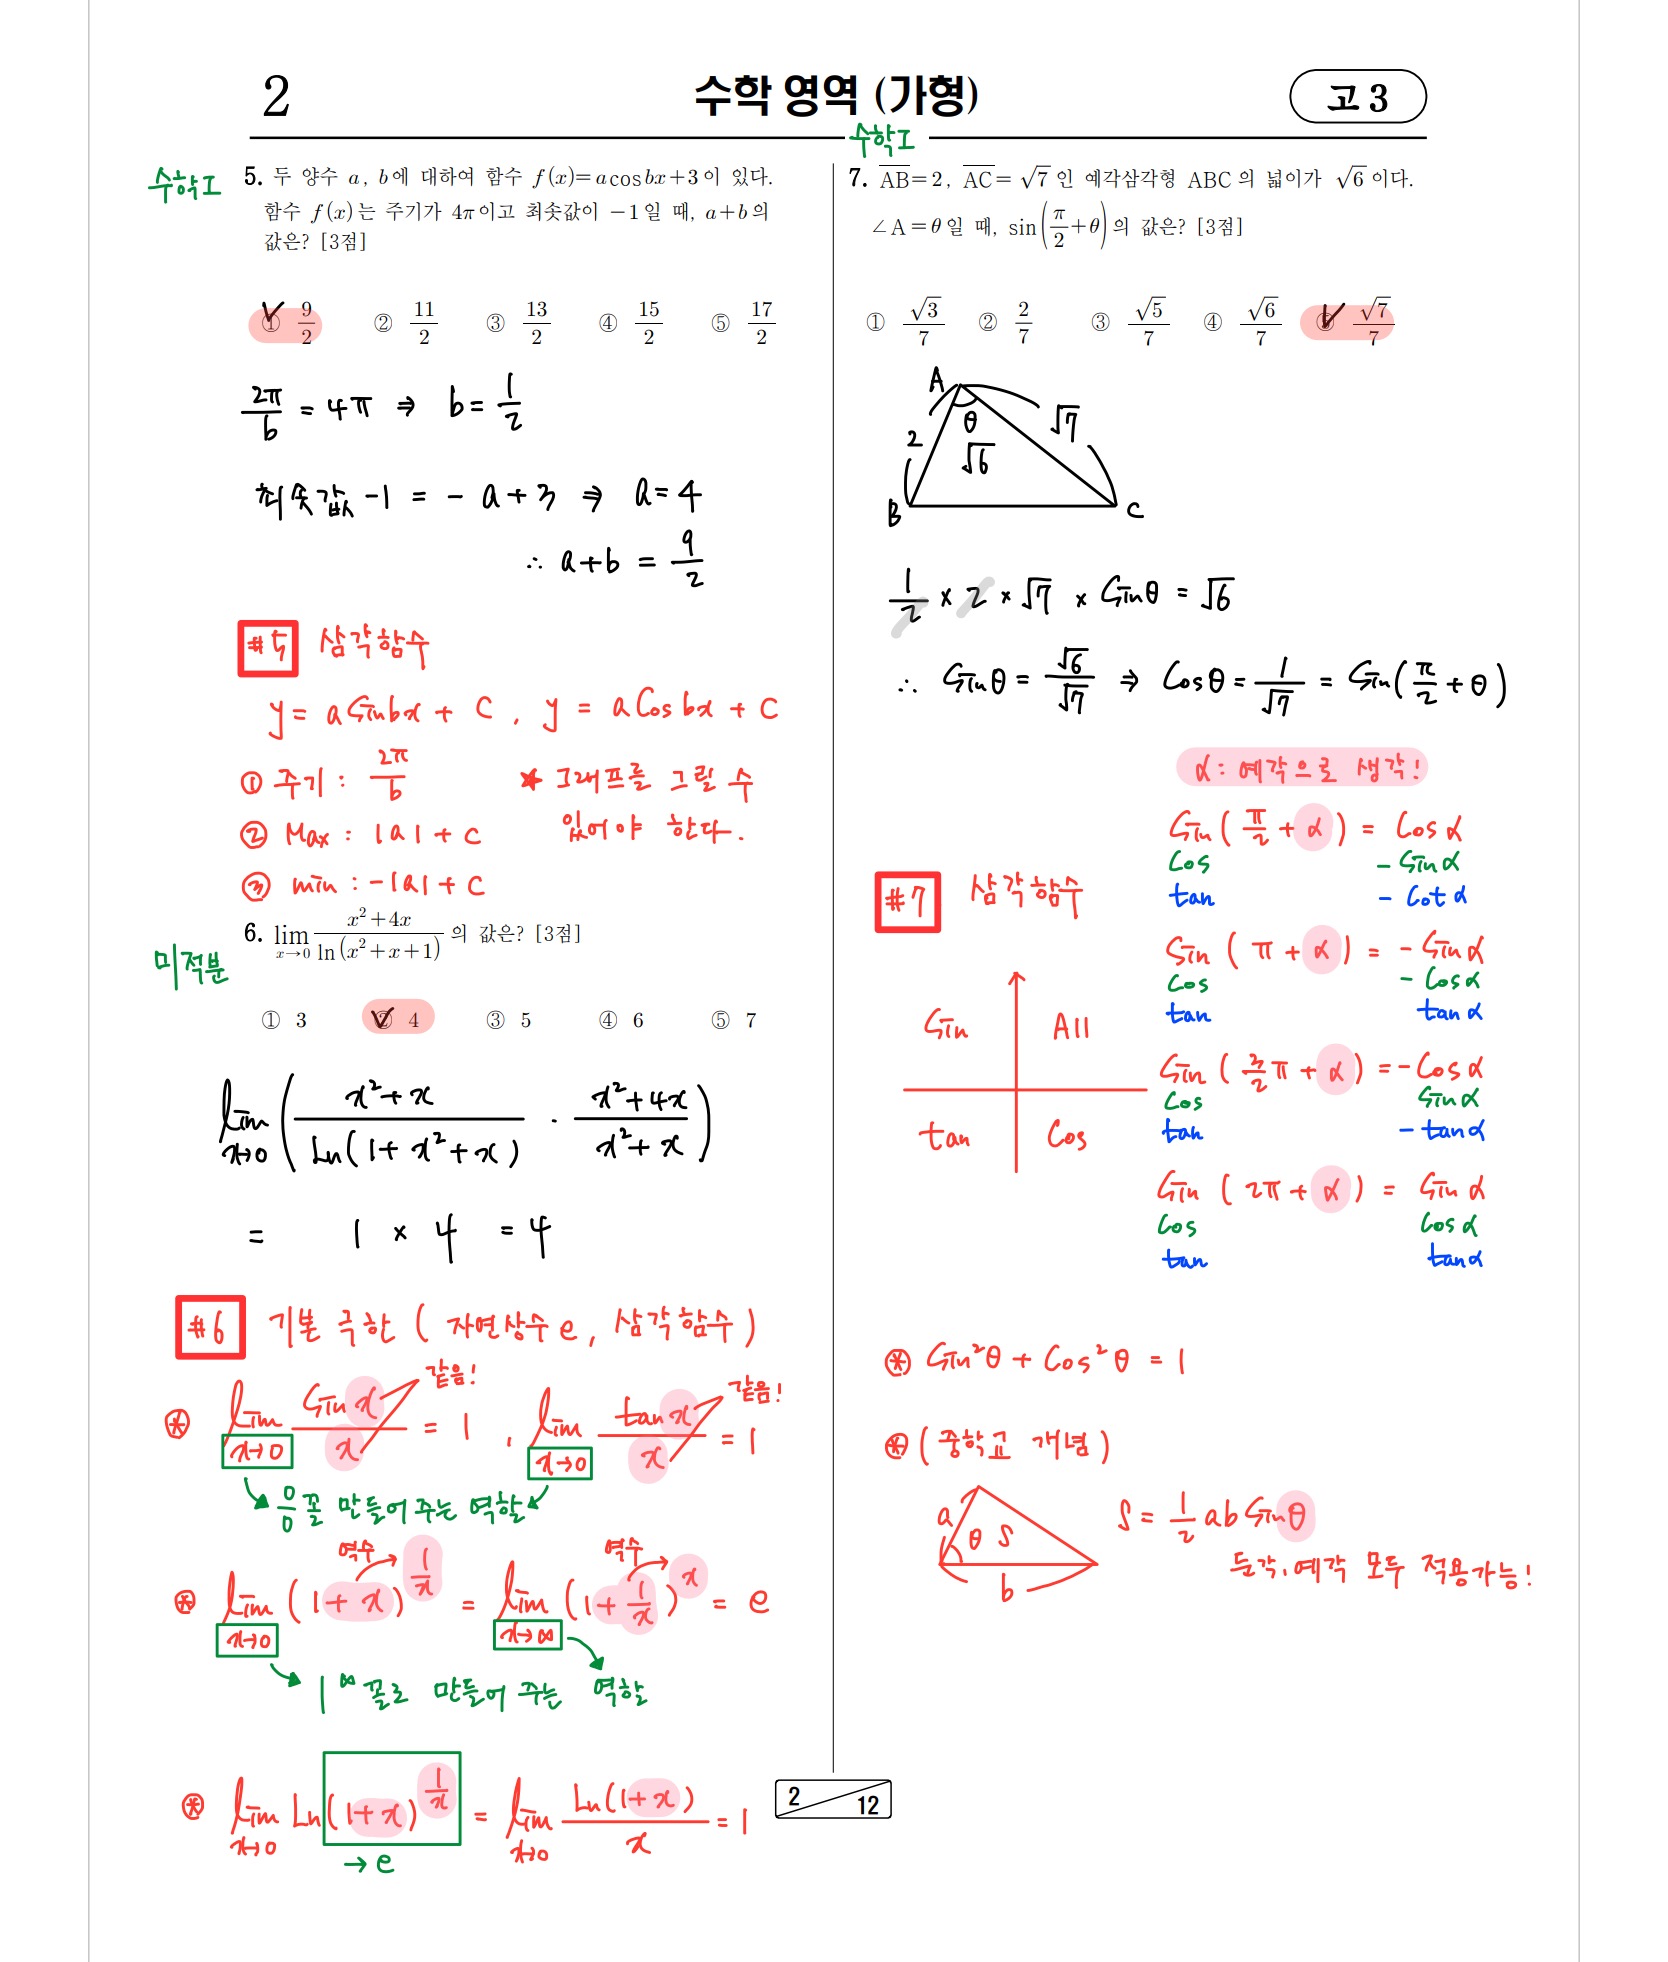 2
수학 영역 (가형)
고 3
수학I
5. 두 양수 a, b에 대하여 함수 f(x)=acosbx+3이 있다.
함수 f(x)는 주기가 4π이고 최솟값이 −1일 때, a+b의
값은? [3점]
① 9/2 ② 11/2 ③ 13/2 ④ 15/2 ⑤ 17/2
2π/b = 4π ⇒ b = 1/2
최솟값 -1 = - a + 3 ⇒ a = 4
∴ a+b = 9/2
#5 삼각함수
y = a Sin bx + C , y = a Cos bx + C
① 주기 : 2π/b
② Max : |a| + C
③ min : -|a| + C
★ 그래프를 그릴 수
있어야 한다.
미적분
6. lim x→0 (x²+4x)/ln(x²+x+1) 의 값은? [3점]
① 3 ② 4 ③ 5 ④ 6 ⑤ 7
lim x→0 ( (x²+x)/Ln(1+x²+x) · (x²+4x)/(x²+x) )
= 1 × 4 = 4
#6 기본 극한 ( 자연상수 e, 삼각함수 )
⊛ lim x→0 Sin x/x = 1 , lim x→0 tan x/x = 1
같음! 같음!
0/0 꼴 만들어 주는 역할
역수 역수
⊛ lim x→0 (1+x)^(1/x) = lim x→∞ (1+1/x)^x = e
1^∞ 꼴로 만들어 주는 역할
⊛ lim x→0 Ln(1+x)^(1/x) = lim x→0 Ln(1+x)/x = 1
→ e
수학I
7. AB=2, AC=√7 인 예각삼각형 ABC의 넓이가 √6 이다.
∠A=θ일 때, sin(π/2+θ)의 값은? [3점]
① √3/7 ② 2/7 ③ √5/7 ④ √6/7 ⑤ √7/7
A
θ
2
√7
√6
B
C
1/2 × 2 × √7 × Sinθ = √6
∴ Sinθ = √6/√7 ⇒ Cosθ = 1/√7 = Sin(π/2 + θ)
α : 예각으로 생각!
#7 삼각함수
Sin ( π/2 + α ) = Cos α
Cos - Sin α
tan - Cot α
Sin ( π + α ) = - Sin α
Cos - Cos α
tan tan α
Sin ( 3/2 π + α ) = - Cos α
Cos Sin α
tan - tan α
Sin ( 2π + α ) = Sin α
Cos Cos α
tan tan α
Sin All
tan Cos
⊛ Sin²θ + Cos²θ = 1
⊛ ( 중학교 개념 )
a
θ S
b
S = 1/2 ab Sinθ
둔각, 예각 모두 적용가능!
2 12